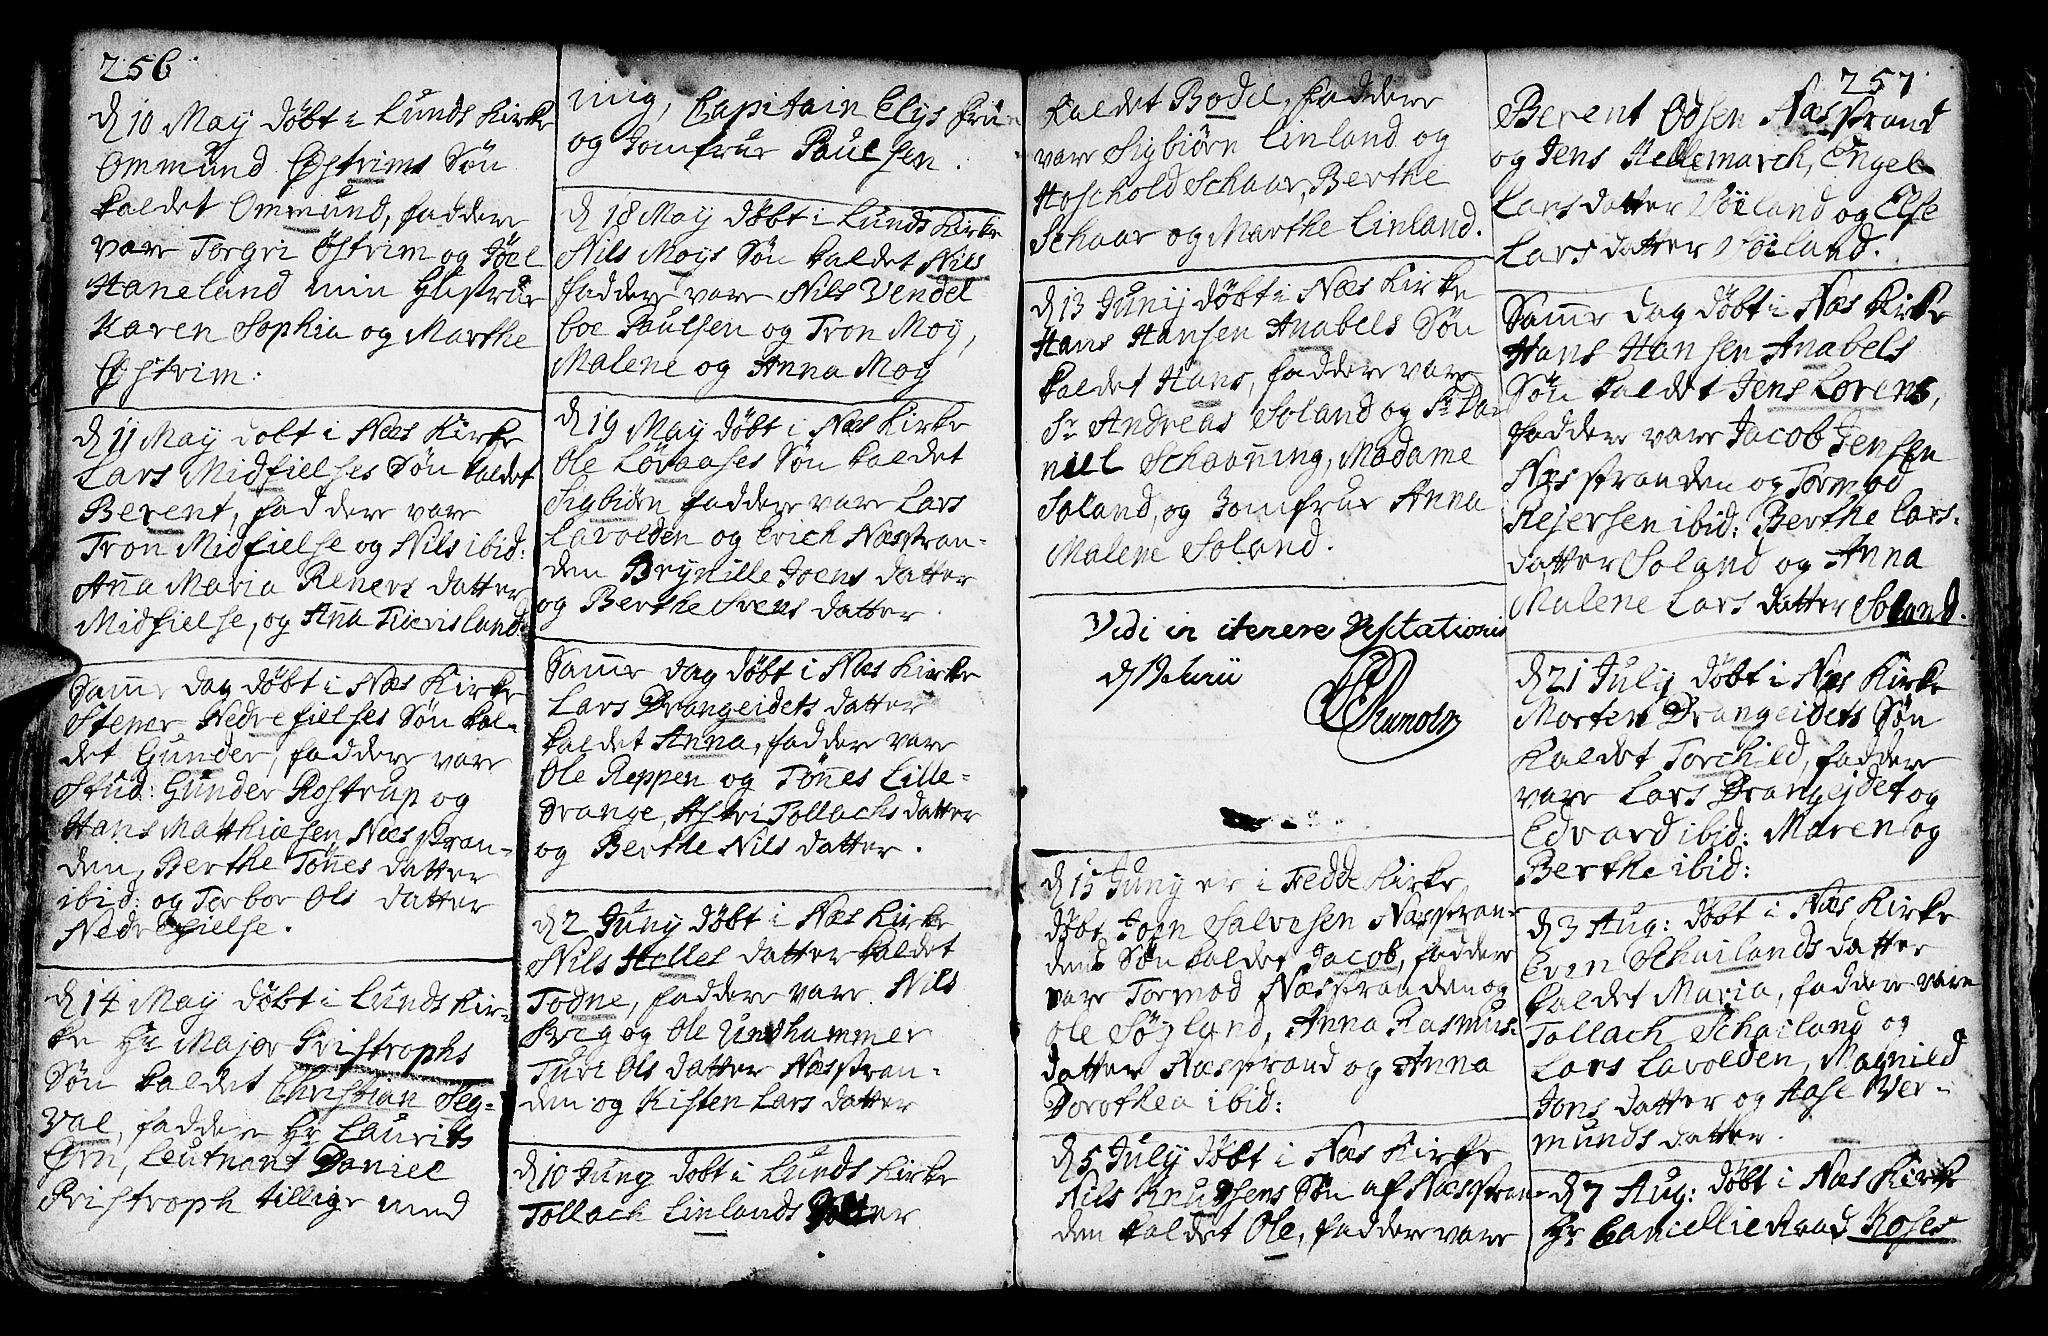 256
d 10 May døbt i Lunds Kirke
Ommund Østrims Søn
kaldet Ommund, faddere
vare Torgri Østrim og Jöel
Haneland min Hustrue
Karen Sophia og Marthe
Østrim:
d 11 May døbt i Næs Kirke
Lars Midfielses Søn kaldet
Berent, faddere vare
Tron Midfielse og Nils ibid:
Anna Maria Reners datter
Midfielse, og Anna
Samme dag døbt i Næs Kirke
Stener Nedrefielses Søn kal-
det Gunder, faddere vare
Stud: Gunder Rostrup og
Hans Matthiasen Næsstran-
den, Berthe Tönnes datter
ibid: og Torbor Ols datter
Nedrefielse.
d 14 May døbt i Lunds Kir-
ke Hr Major Pristrophs
Søn kaldet Christian Seg-
val, faddere Hr Laurits
Ørn, Leutnant Daniel
Pristroph tillige med
ing, Capitain Elys frue
og Jomfrue Paulsen.
d 18 May døbt i Lunds Kirke
Nils Moys Søn kaldet Nils
faddere vare Nils Vendel
boe Paulsen og Tron Moy,
Malene og Anna Moy
d 19 May døbt i Næs Kirke
Ole Lövaases Søn kaldet
Sigbiörn faddere vare Lars
Lavolden og Erich Næsstran-
den Brynille Joens datter
og Berthe Svens datter.
Samme dag døbt i Næs Kirke
Lars Drangeidets datter
kaldet Anna, faddere vare
Ole Reppen og Tönnes Lille-
Drange, Astri Tollachs datter
og Berthe Nils datter.
d 2 Juny døbt i Næs Kirke
Nils Helles datter kaldet
Todne, faddere vare Nils
Brig og Ole Undhammer
Ture Ols datter Næsstran-
den og Kisten Lars datter
d 10 Juny døbt i Lunds Kirke
Tollach Linlands Datter
kaldet Bodel, faddere
vare Sigbiörn Linland og
Hoschold Schaar, Berthe
Schaar og Marthe Linland.
d 13 Junij døbt i Næs Kirke
Hans Hansen Anabels Søn
kaldet Hans, faddere vare
Sr Andreas Soland og Sr Da-
niel Schaaning, Madame
Soland, og Jomfrue Anna
Malene Soland.
Vidi in itenere Visitationis
d Junii
d 15 Juny er i Fedde Kirke
døbt Joen Salvesen Næsstran-
dens Søn kaldet Jacob, faddere
vare Tormod Næsstranden og
Ole Söyland, Anna Rasmus-
datter Næsstrand og Anna
Dorothea ibid:
d 5 July døbt i Næs Kirke
Nils Knudsens Søn af Næsstran-
den kaldet Ole, faddere vare
257
Berent Odsen Næsstrand
og Jens Hellemarch, Engel
Larsdatter Söiland og Else
Larsdatter Söiland.
Samme dag døbt i Næs Kirke
Hans Hansen Anabels
Søn kaldet Jens Lorens,
faddere vare Jacob Jensen
Næsstranden og Tormod
Rejersen ibid: Berthe Lars-
datter Soland og Anna
Malene Lars datter Soland.
d 21 July døbt i Næs Kirke
Morten Drangeidets Søn
kaldet Torchild, faddere
vare Lars Drangejdet og
Edvard ibid: Maren og
Berthe ibid:
d 3 Aug: døbt i Næs Kirke
Even Schailands datter
kaldet Maria, faddere vare
Tollach Schailand og
Lars Lavolden, Magnild
Jons datter og Aase Ver-
munds datter.
d 7 Aug: døbt i Næs Kirke
Hr Cancellie Raad Koses